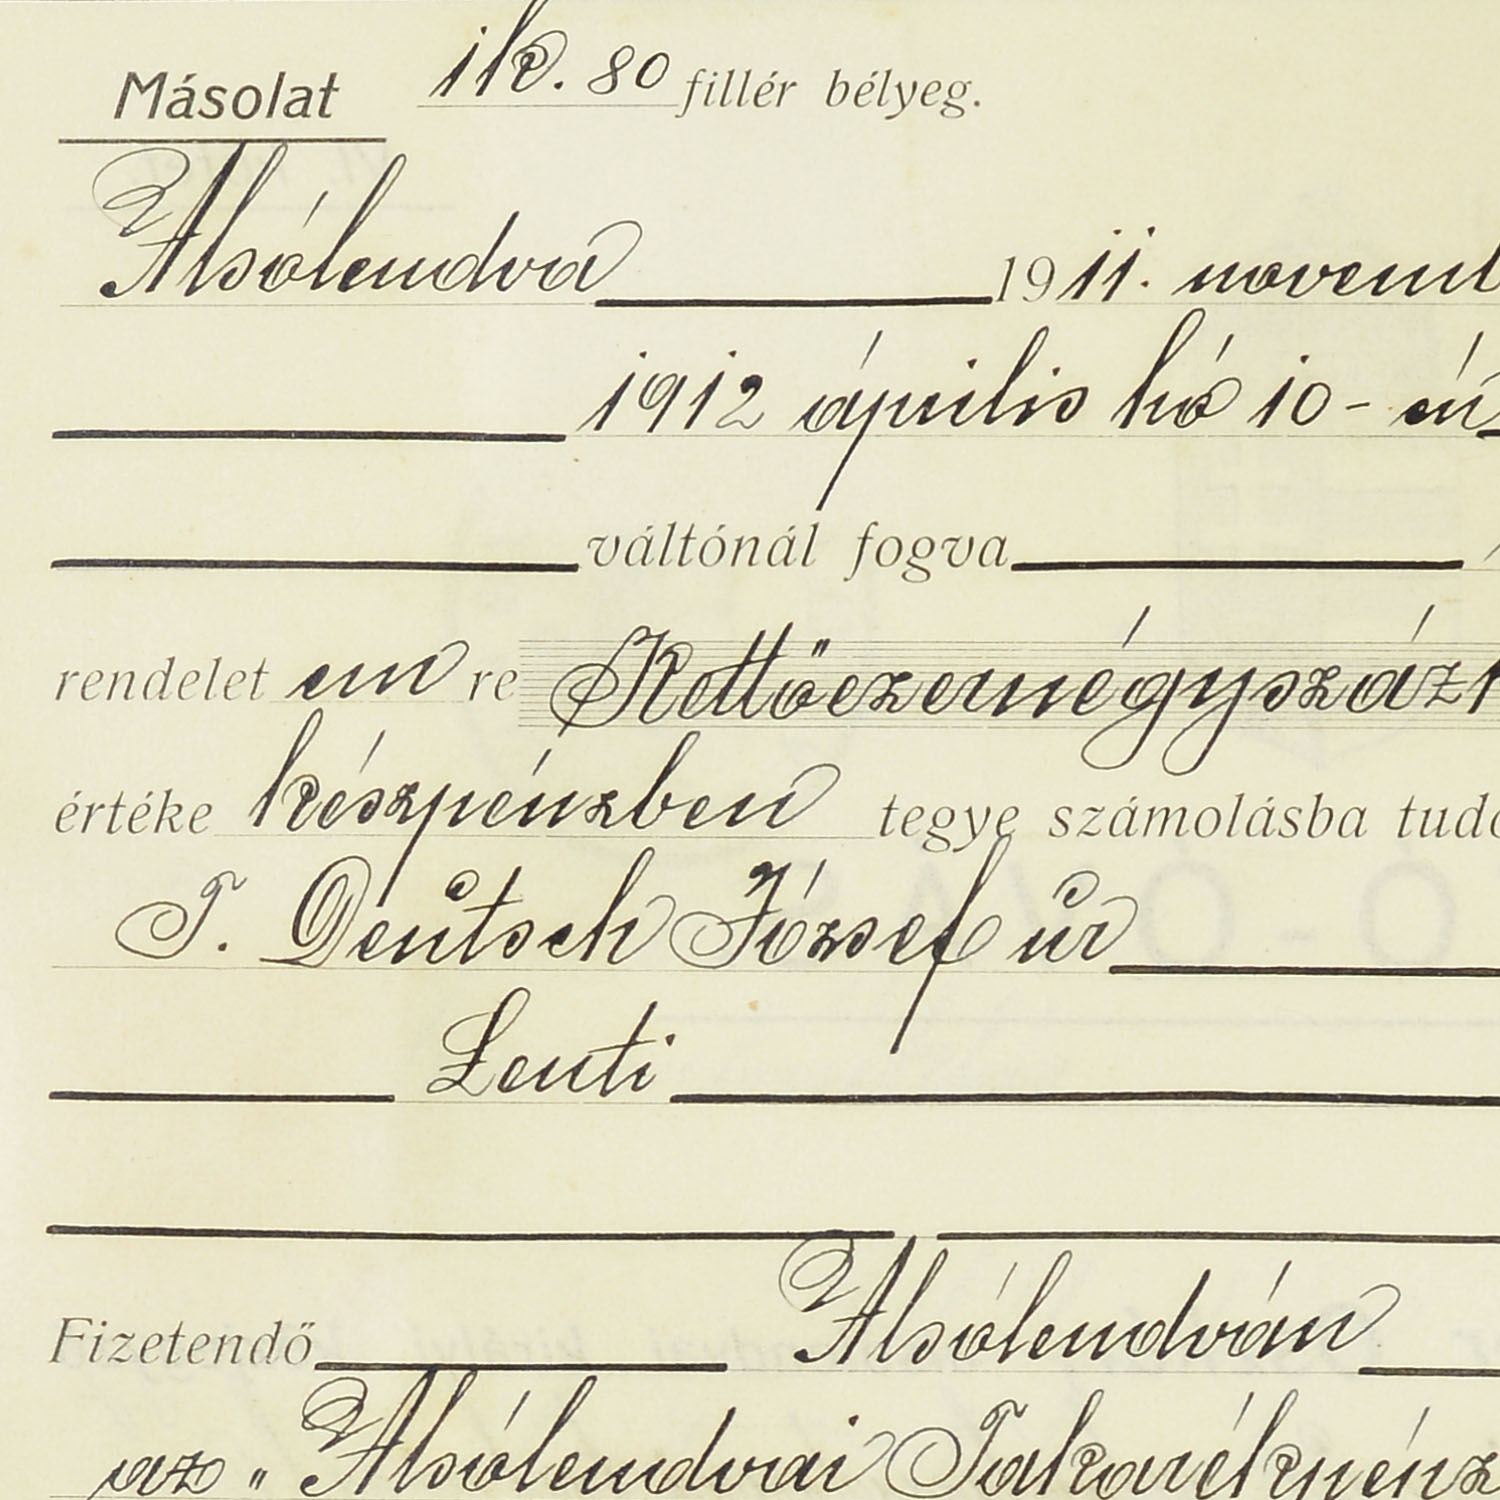 Másolat 1 k. 80 fillér bélyeg.
Alsólendva 1911. novemb
1912 április hó 10-én
váltónál fogva
rendelet em re Kettőezernégyszáz
értéke készpénzben tegye számolásba tud
T. Deutsch József úr
Lenti
Fizetendő Alsólendván
az „Alsólendvai Takarékpénz